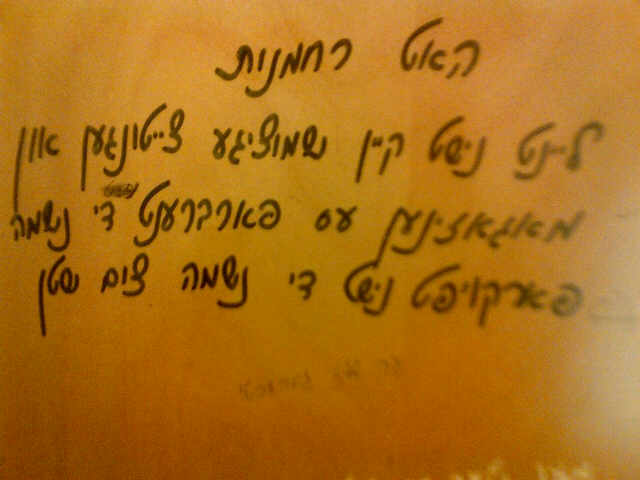 האט רחמנות
לײנט נישט קײן שמוציגע צײטונגען און
מאגאזינען עס פארברענט די נשמה
פארקויפט נישט די נשמה צום שטן